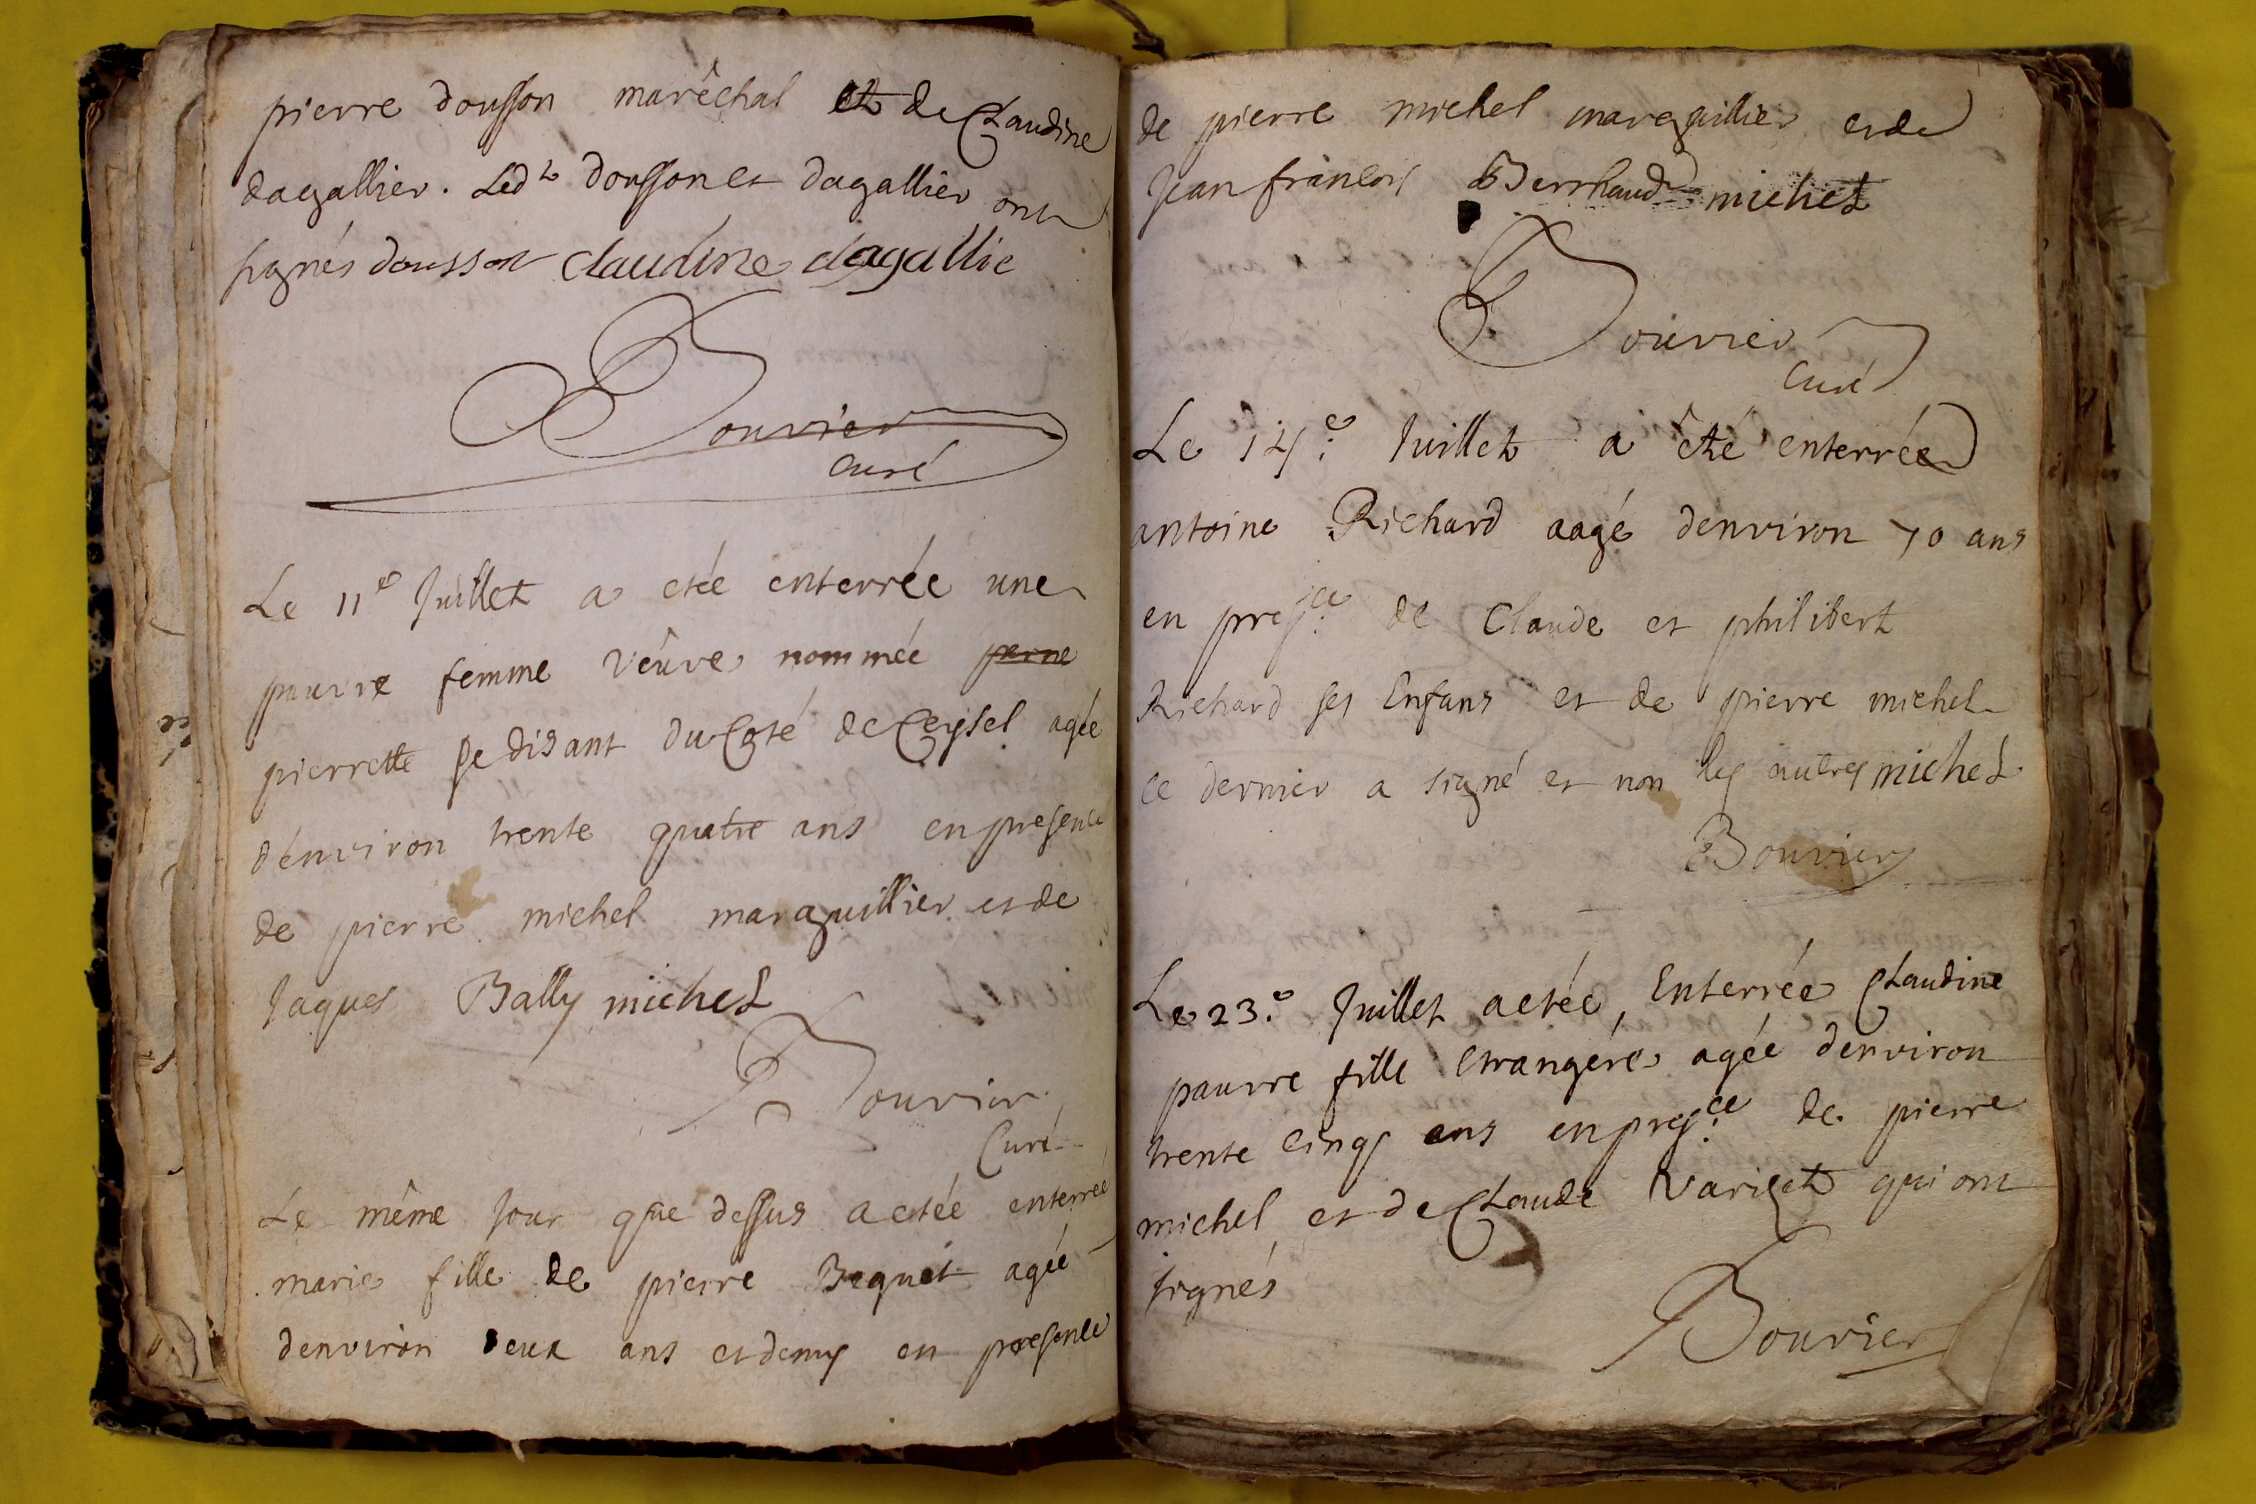 pierre dousson maréchal et de Claudine
dagallier. Ledt dousson et dagallier ont
signés dousson claudine dagallie
Bouvier
curé
Le 11e Juillet a etée enterrée une
pauvre femme vêuve nommée
pierrette se disant du Coté de Ceysel agée
d'environ trente quatre ans en presence
de pierre michel marguillier et de
Jaques Bally michel
Bouvier
Curé
Le même Jour que dessus a etée enterrée
marie fille de pierre Bequet agée
denviron deux ans et demy en presence
de pierre michel marguillier et de
Jean francois Berrhaud michel
Bouvier
Curé
Le 14e. Juillet a êté enterrée
antoine Richard aagé denviron 70 ans
en presce. de Claude et philibert
Richard ses Enfans et de pierre michel
ce dernier a signé et non les autres michel
Bouvier
Le 23e. Juillet a etée Enterrée Claudine
pauvre fille Etrangére agée denviron
trente cinq ans en presce. de pierre
michel et de Claude Variget qui ont
signés
Bouvier